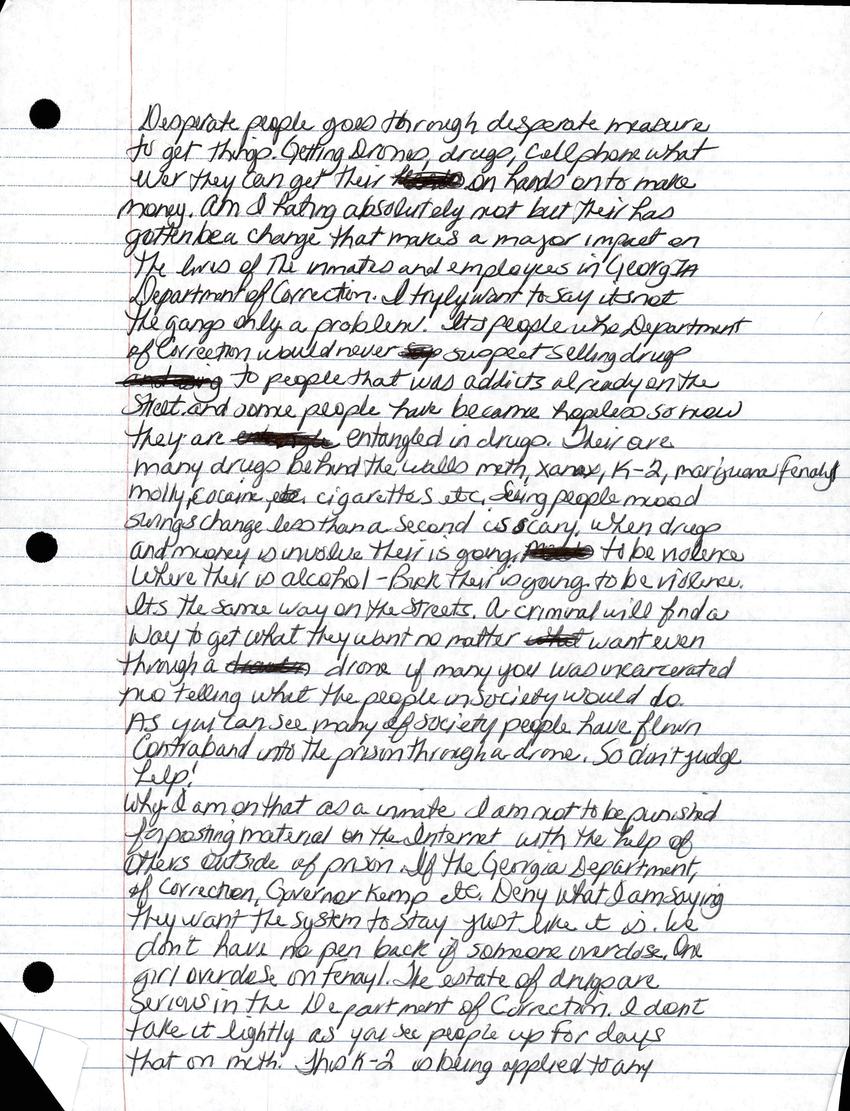 Desperate people goes through desperate measure
to get things. Getting Drones, drugs, Cell phone what
ever they can get their on hands on to make
money. Am I hating absolutely not but their has
gotten be a change that makes a major impact on
The lives of The inmates and employees in Georgia
Department of Correction. I tryly want to say its not
the gangs only a problem. Its people who Department
of Correction would never suspect selling drugs
to people that was addicts already on the
Street. and some people have became hopeless so now
they are entangled in drugs. Their are
many drugs behind the walls meth, xanax, K-2, marijuana Fenalyl
molly, cocaine, etc. cigarettes etc. Seing people mood
swings change less than a second is scary. When drugs
and muoney is involve their is going to be violence
Where their is alcohol - Buck their is going to be violence.
Its the same way on the Streets. A criminal will find a
way to get what they want no matter want even
through a drone if many you was incarcerated
no telling what the people in society would do.
As you can see many of society people have flown
Contraband into the prison through a drone. So don't judge
help!
Why I am on that as a inmate I am not to be punished
for posting material on the Internet with the help of
Others outside of prison. If the Georgia Department,
of Correction, Governor Kemp etc. Deny what I am saying
they want the system to stay just like it is. We
don't have no pen back if someone overdose. One
girl overdose on Fenayl. The estate of drugs are
Serious in the Department of Correction. I dont
take it lightly as you see people up for days
that on meth. This K-2 is being applied to any